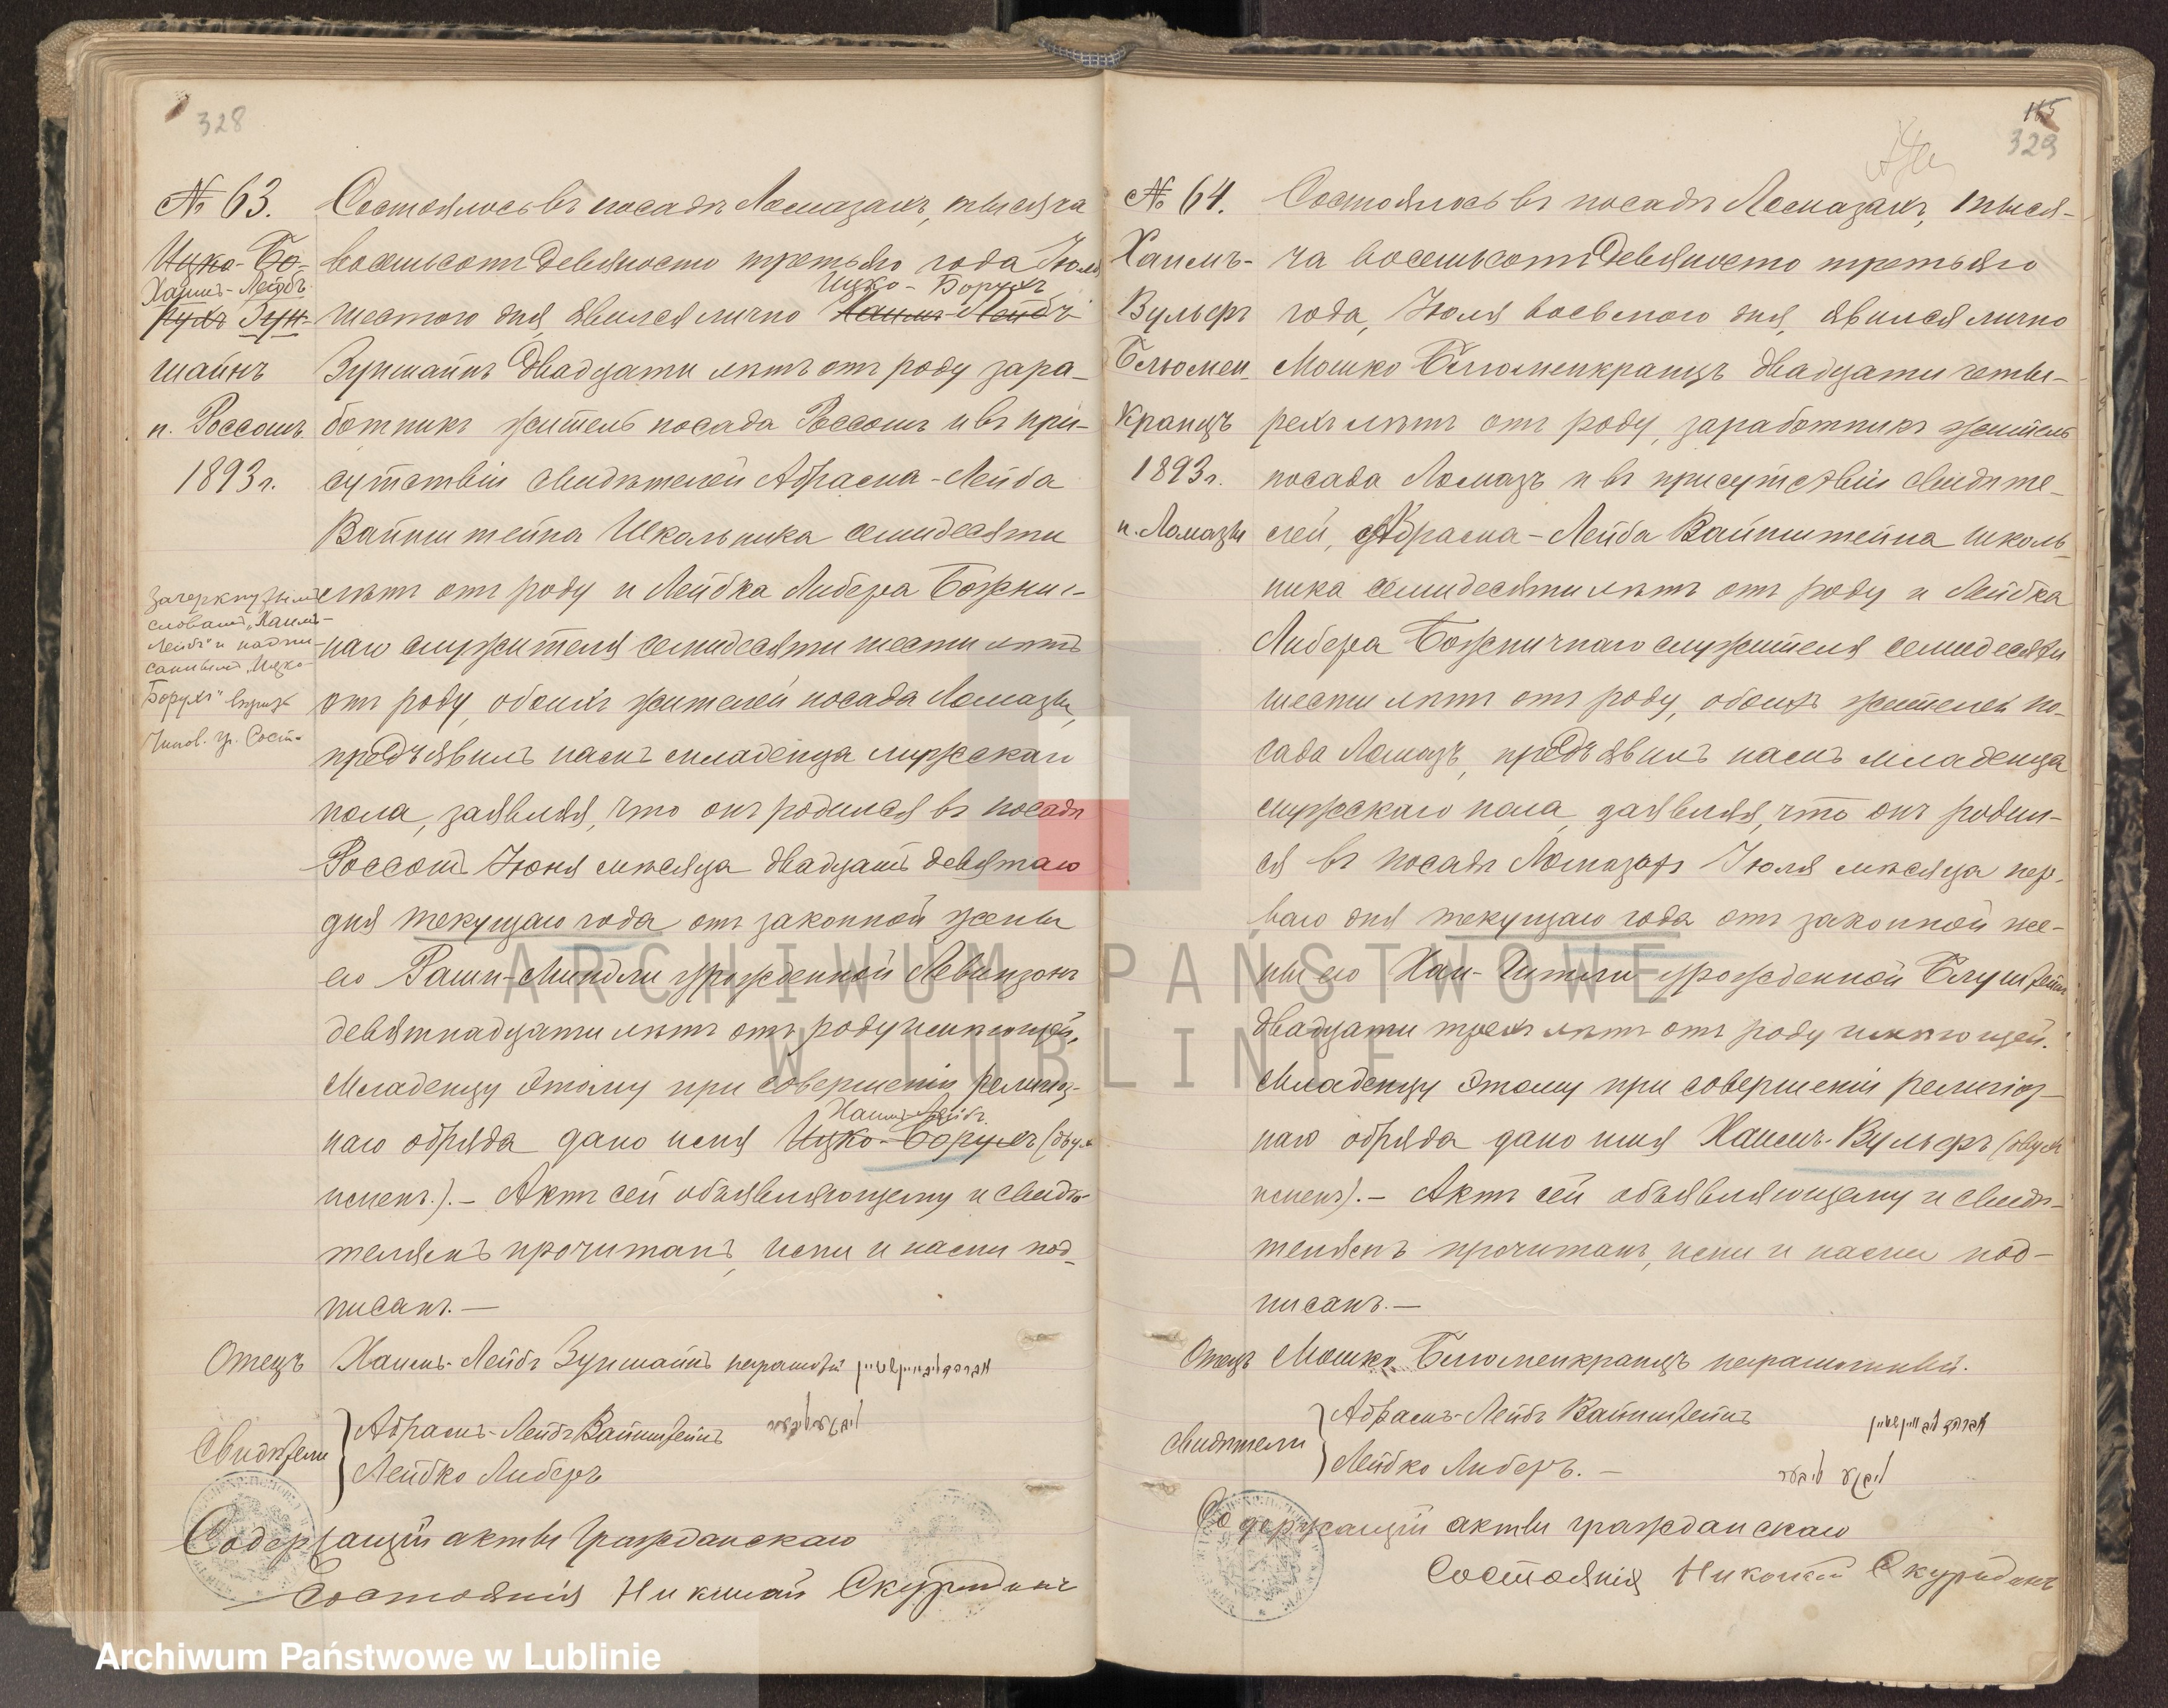 328
№ 63.
Ицко-Бо-
Хаимъ-Лейбъ
рухъ Зун-
шайнъ
п. Россошъ
1893 г.
Зачеркнутыми
словами „Хаимъ-
Лейбъ" и надпи-
санными „Ицко-
Борухъ" вѣрно
Чинов. гр. Сост.
Состоялось въ посадѣ Ломазахъ, тысяча
восемьсотъ девяносто третьяго года Іюля
Ицко-Борухъ
шестого дня, явился лично Хаимъ-Лейбъ
Зуншайнъ двадцати лѣтъ отъ роду зара-
ботникъ житель посада Россошъ и въ при-
сутствіи свидѣтелей Абрама-Лейба
Вайнштейна Школьника семидесяти
лѣтъ отъ роду и Лейбка Либера Божнич-
наго служителя семидесяти шести лѣтъ
отъ роду, обоихъ жителей посада Ломазы,
предъявилъ намъ младенца мужскаго
пола, заявляя, что онъ родился въ посадѣ
Россошъ Іюня мѣсяца двадцать девятаго
дня текущаго года отъ законной жены
его Рашп-Миндли урожденной Левинзонъ
девятнадцати лѣтъ отъ роду имѣющей.
Младенцу этому при совершеніи религіоз-
Хаимъ-Лейбъ
наго обряда дано имя Ицко-Борухъ (двухъ
именъ). — Актъ сей объявляющему и свидѣ-
телямъ прочитанъ, ими и нами под-
писанъ. —
Отецъ Хаимъ-Лейбъ Зуншайнъ неграмотный אברהם ליב וויינשטיין
Свидѣтели Абрамъ-Лейбъ Вайнштейнъ
Лейбко Либеръ
Содержащій акты Гражданскаго
Состоянія Николай Скуридинъ
165
329
№ 64.
Хаимъ-
Вульфъ
Блюмен-
кранцъ
1893 г.
п. Ломазы
Состоялось въ посадѣ Ломазахъ, тыся-
ча восемьсотъ девяносто третьяго
года, Іюля восьмого дня, явился лично
Мошко Блюменкранцъ двадцати четы-
рехъ лѣтъ отъ роду, заработникъ житель
посада Ломазъ и въ присутствіи свидѣте-
лей, Абрама-Лейба Вайнштейна школь-
ника семидесяти лѣтъ отъ роду и Лейбка
Либера Божничнаго служителя семидесяти
шести лѣтъ отъ роду, обоихъ жителей по-
сада Ломазъ, предъявилъ намъ младенца
мужскаго пола, заявляя, что онъ родил-
ся въ посадѣ Ломазахъ Іюля мѣсяца пер-
ваго дня текущаго года отъ законной же-
ны его Хаи-Гитли урожденной
двадцати трехъ лѣтъ отъ роду имѣющей.
Младенцу этому при совершеніи религіоз-
наго обряда дано имя Хаимъ-Вульфъ (двухъ
именъ). — Актъ сей объявляющему и свидѣ-
телямъ прочитанъ, ими и нами под-
писанъ. —
Отецъ Мошко Блюменкранцъ неграмотный.
Свидѣтели Абрамъ-Лейбъ Вайнштейнъ אברהם ליב וויינשטיין
Лейбко Либеръ. —
Содержащій акты гражданскаго
Состоянія Николай Скуридинъ
ARCHIWUM PAŃSTWOWE
W LUBLINIE
Archiwum Państwowe w Lublinie